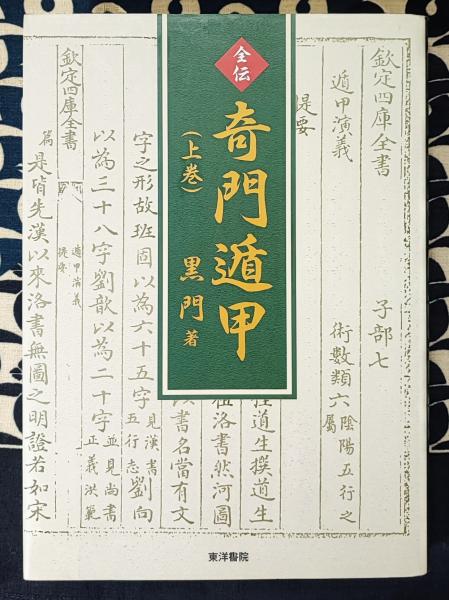 全伝
奇門遁甲
(上巻)
黒門 著
欽定四庫全書 子部七
遁甲演義 術數類六 陰陽五行之屬
提要
道生撰道生
洛書然河圖
以書名當有文
字之形故班固以為六十五字 見漢書五行志 劉向
以為三十八字劉歆以為二十字 並見尚書正義洪範
欽定四庫全書 遁甲演義 提要
篇 是皆先漢以來洛書無圖之明證若如宋
東洋書院